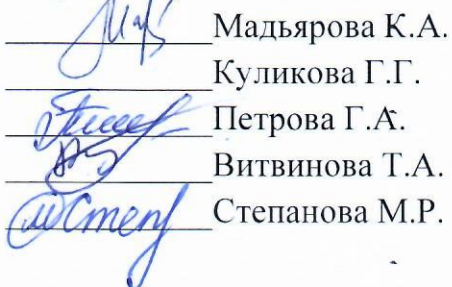 Мадьярова К.А.
Куликова Г.Г.
Петрова Г.А.
Витвинова Т.А.
Степанова М.Р.